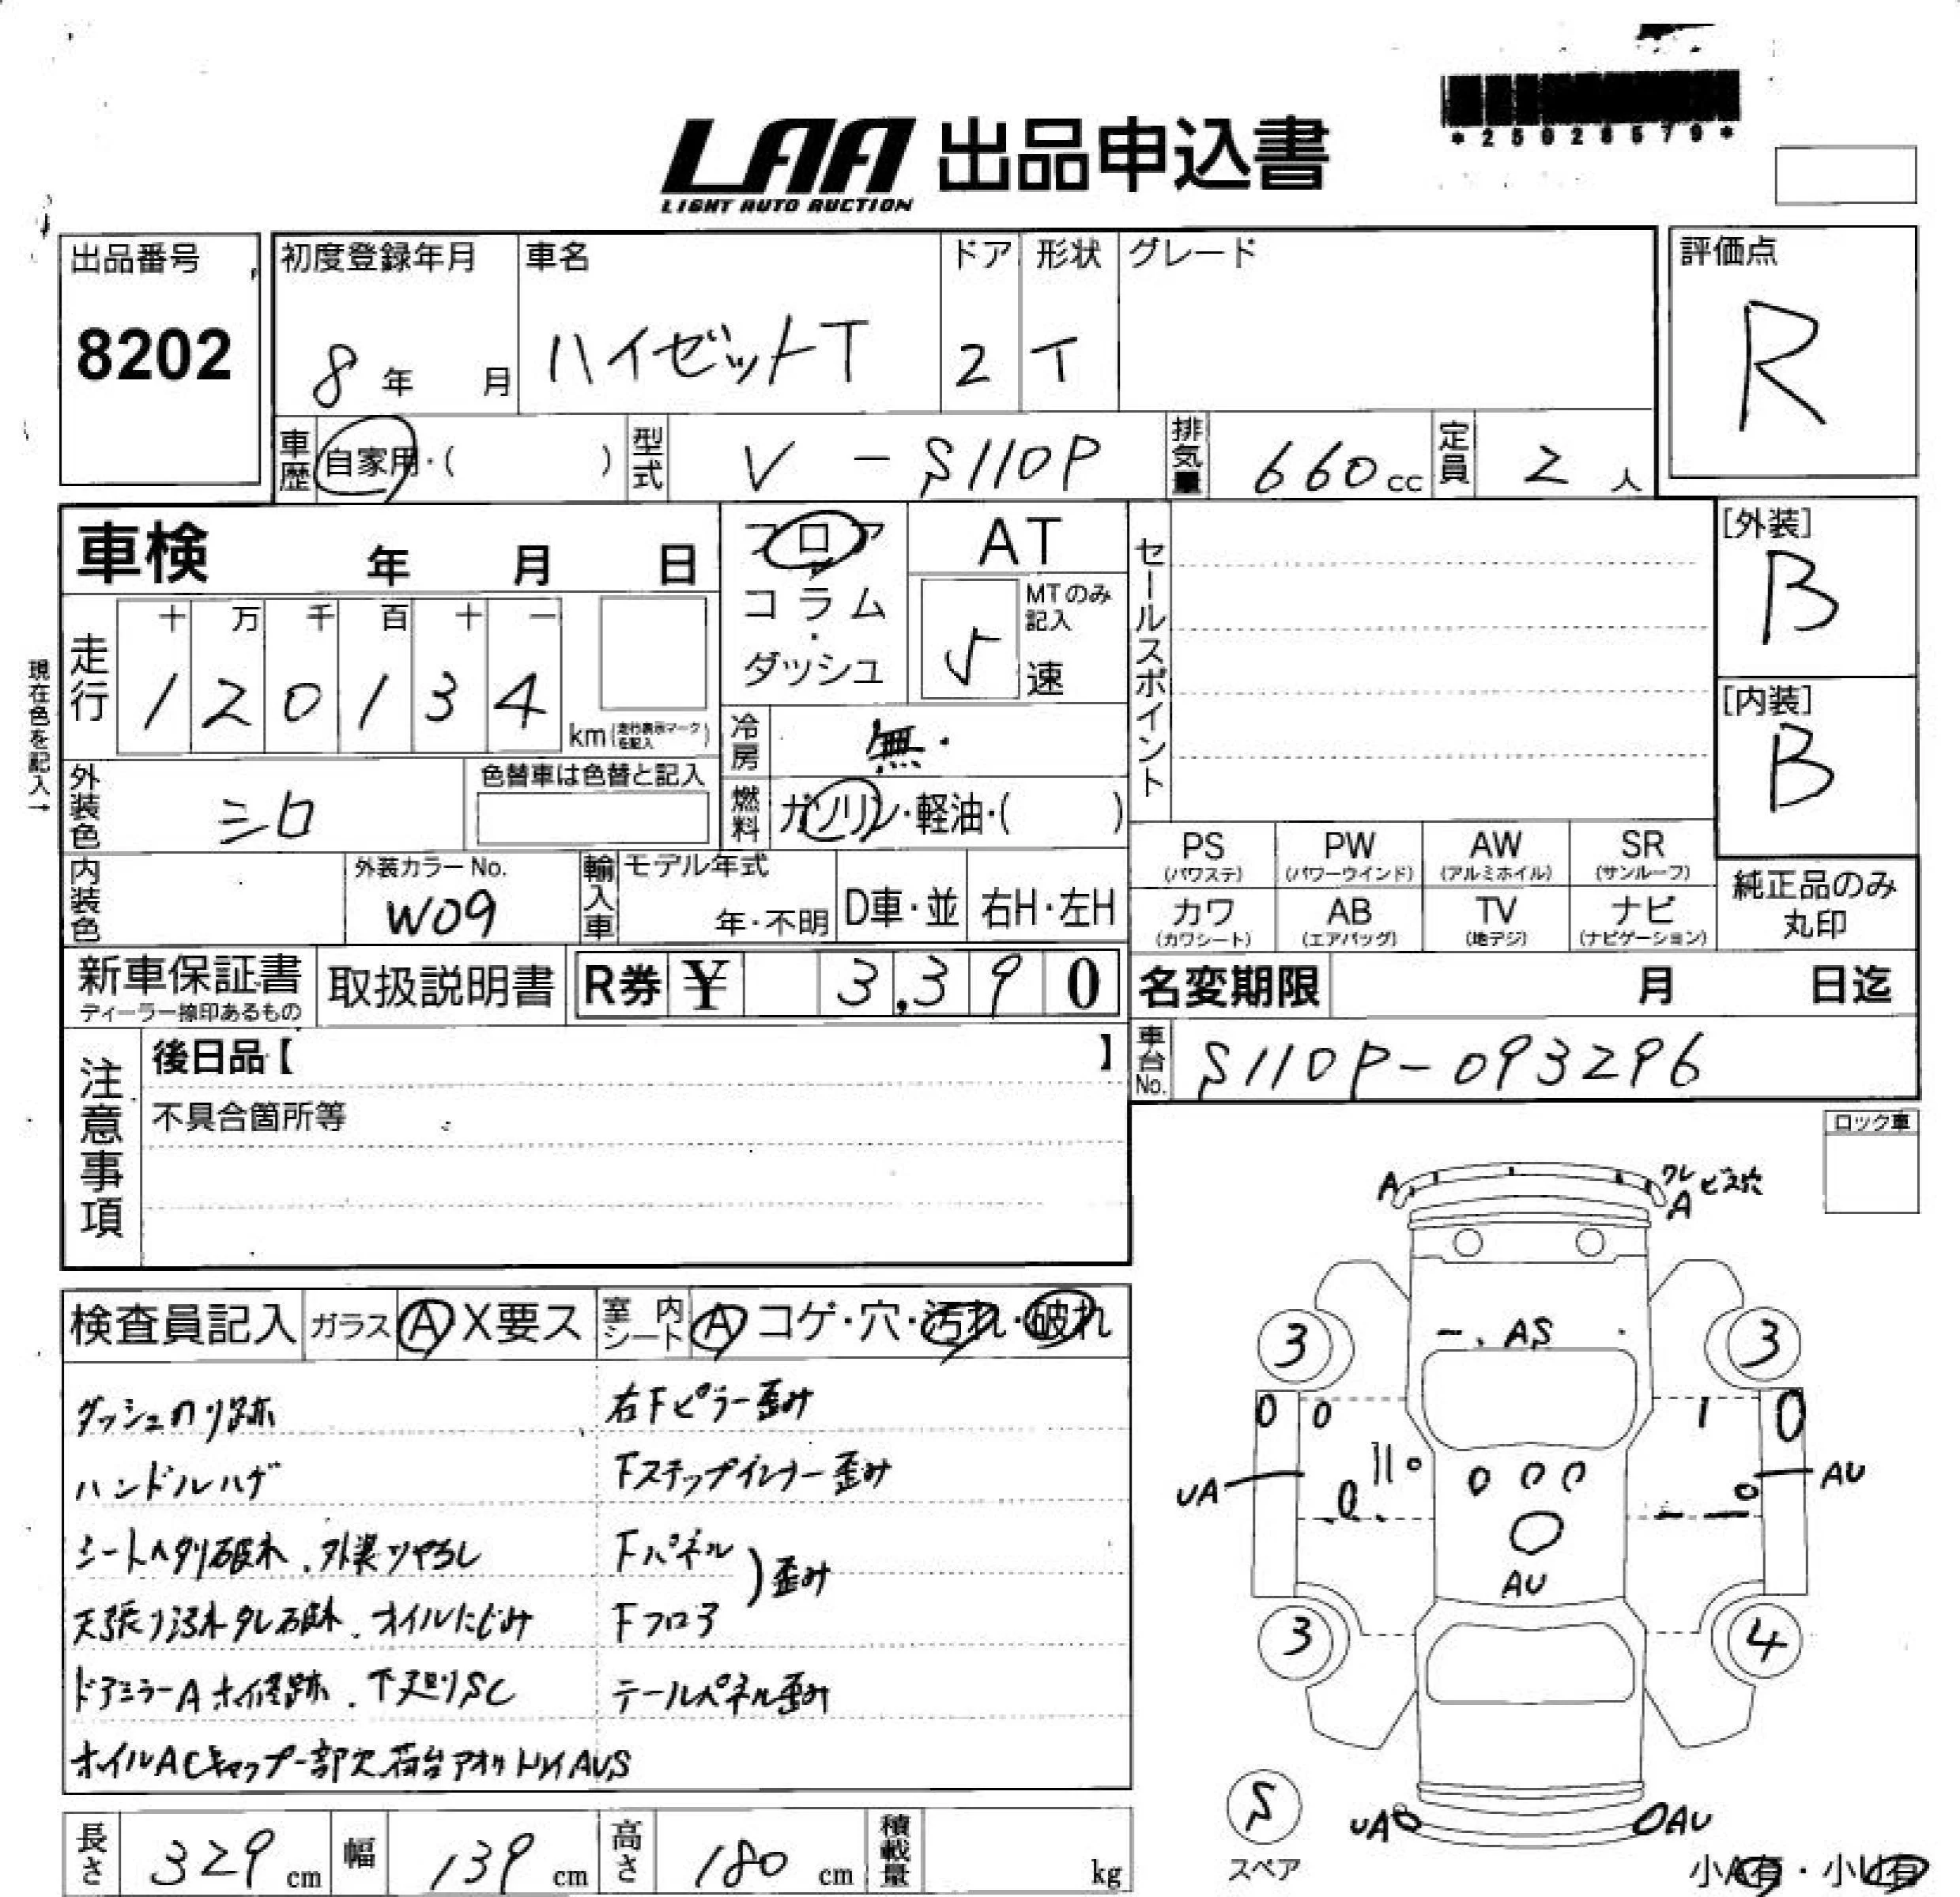 LAA 出品申込書
LIGHT AUTO AUCTION
*25026579*
出品番号
8202
初度登録年月
8年 月
車名
ハイゼットT
ドア
2
形状
T
グレード
評価点
R
車歴 自家用・( )
型式 V-S110P
排気量 660cc
定員 2人
車検 年 月 日
フロア・コラム・ダッシュ
AT
MTのみ記入
5速
セールスポイント
[外装]
B
[内装]
B
現在色を記入→
走行
十 万 千 百 十 一
1 2 0 1 3 4
km(走行表示マークを記入)
冷房 無・
燃料 ガソリン・軽油・( )
外装色 シロ
色替車は色替と記入
内装色
外装カラーNo.
W09
輸入車
モデル年式
年・不明
D車・並
右H・左H
PS (パワステ)
PW (パワーウインド)
AW (アルミホイル)
SR (サンルーフ)
カワ (カワシート)
AB (エアバッグ)
TV (地デジ)
ナビ (ナビゲーション)
純正品のみ丸印
新車保証書
ディーラー捺印あるもの
取扱説明書
R券 ¥ 3,390
名変期限 月 日迄
車台No. S110P-093296
注意事項
後日品【 】
不具合箇所等
ロック車
検査員記入 ガラス A X要ス 室内シート A コゲ・穴・汚れ・破れ
ダッシュのり跡
ハンドルハゲ
シートヘタリ破れ、外装ツヤ
天張り汚れタレ破れ、オイルにじみ
ドアミラーA 下廻りSC
オイル キャップ一部欠 荷台アオリ AUS
右Fピラー歪み
Fステップインナー歪み
Fパネル
Fフロア
)歪み
テールパネル歪み
A
ワレ ビス穴
A
AS
3
3
UA
AU
AU
3
4
S
スペア
UA
AU
小A有・小U有
長さ 329cm
幅 139cm
高さ 180cm
積載量 kg